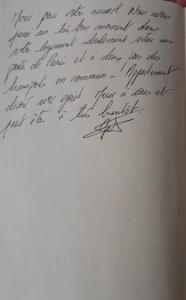 Merci pour votre accueil. Nous avons
passé un très bon moment dans
votre logement idéalement situé aux
porte de Paris et à deux pas des
transports en commun. L'Appartement
décoré avec goût. Merci à vous et
peut être à très bientôt.